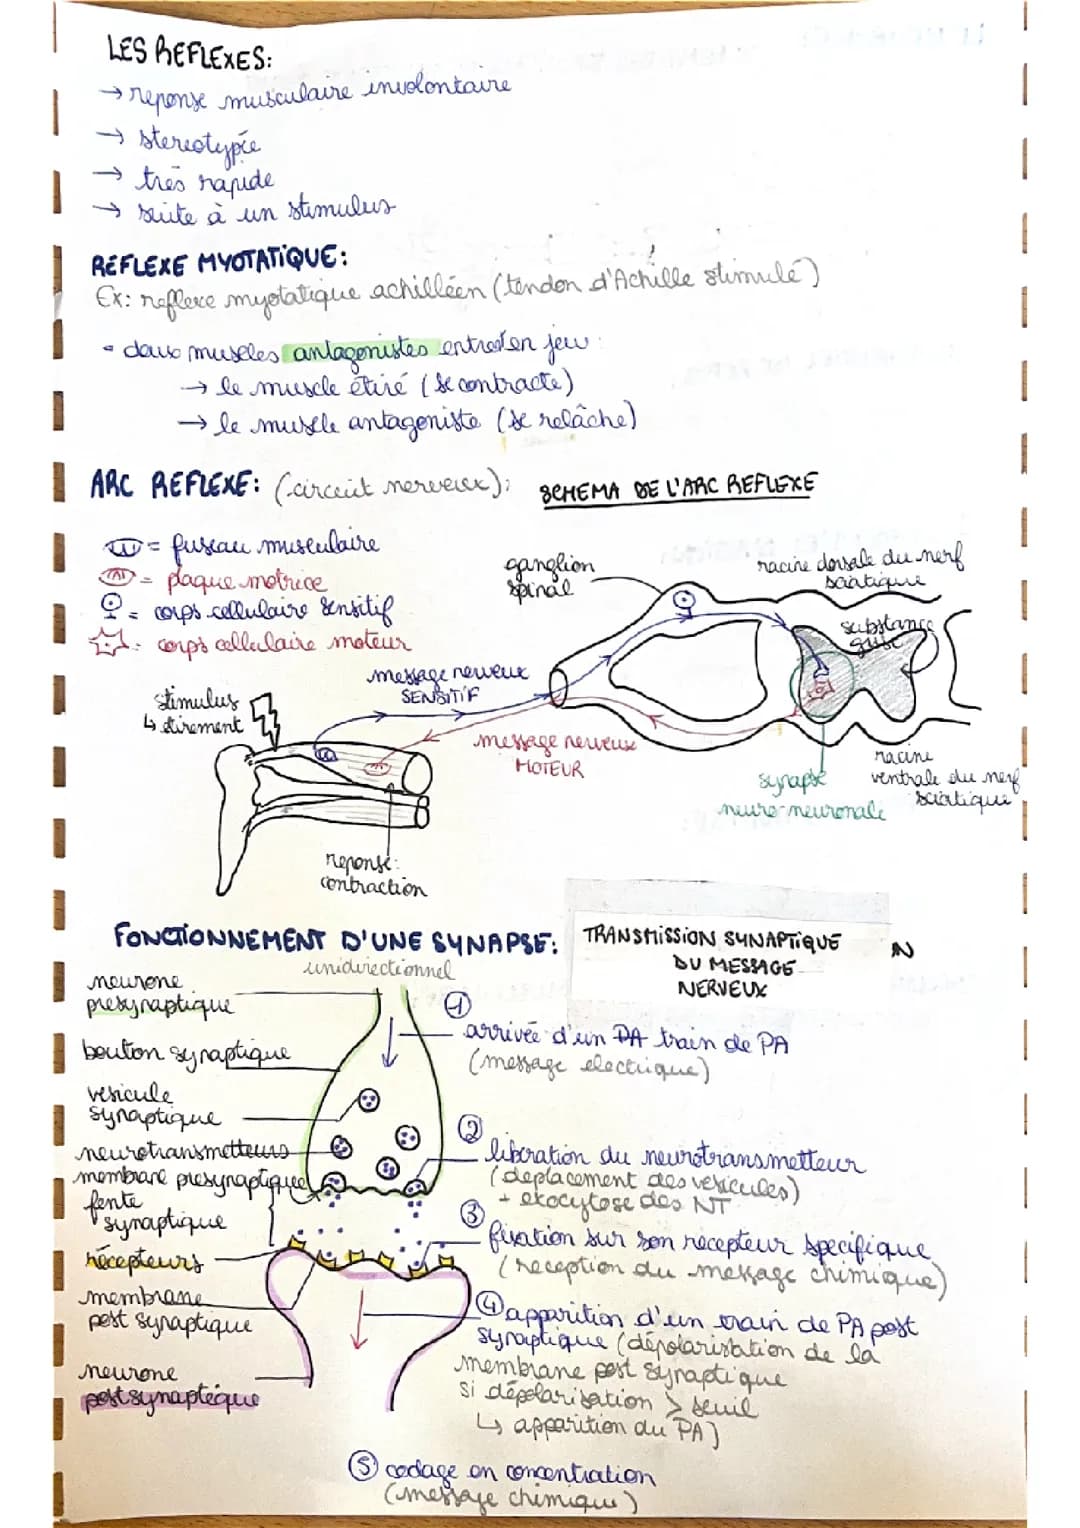 LES REFLEXES:
→ reponse musculaire involontaire
→ stereotypée
→ très rapide
→ suite à un stimulus
REFLEXE MYOTATIQUE:
Ex: reflexe myotatique achilléen (tendon d'Achille stimulé)
• deux muscles antagonistes entrent en jeu:
→ le muscle étiré (se contracte)
→ le muscle antagoniste (se relâche)
ARC REFLEXE: (circuit nerveux):
SCHEMA DE L'ARC REFLEXE
= fuseau musculaire
= plaque motrice
= corps cellulaire sensitif
= corps cellulaire moteur
ganglion
spinal
racine dorsale du nerf
sciatique
substance
grise
message nerveux
SENSITIF
stimulus
↳ étirement
message nerveux
MOTEUR
synapse
neuro-neuronale
racine
ventrale du nerf
sciatique
reponse:
contraction
FONCTIONNEMENT D'UNE SYNAPSE:
unidirectionnel
TRANSMISSION SYNAPTIQUE
DU MESSAGE
NERVEUX
ON
neurone
presynaptique
bouton synaptique
vesicule
synaptique
neurotransmetteurs
membrane presynaptique
fente
synaptique
récepteurs
membrane
post synaptique
neurone
postsynaptique
①
arrivée d'un PA train de PA
(message electrique)
②
libération du neurotransmetteur
(deplacement des vesicules)
+ exocytose des NT
③
fixation sur son recepteur specifique
(reception du message chimique)
④ apparition d'un train de PA post
synaptique (dépolarisation de la
membrane post synaptique
si dépolarisation > seuil
↳ apparition du PA)
⑤ codage en concentration
(message chimique)